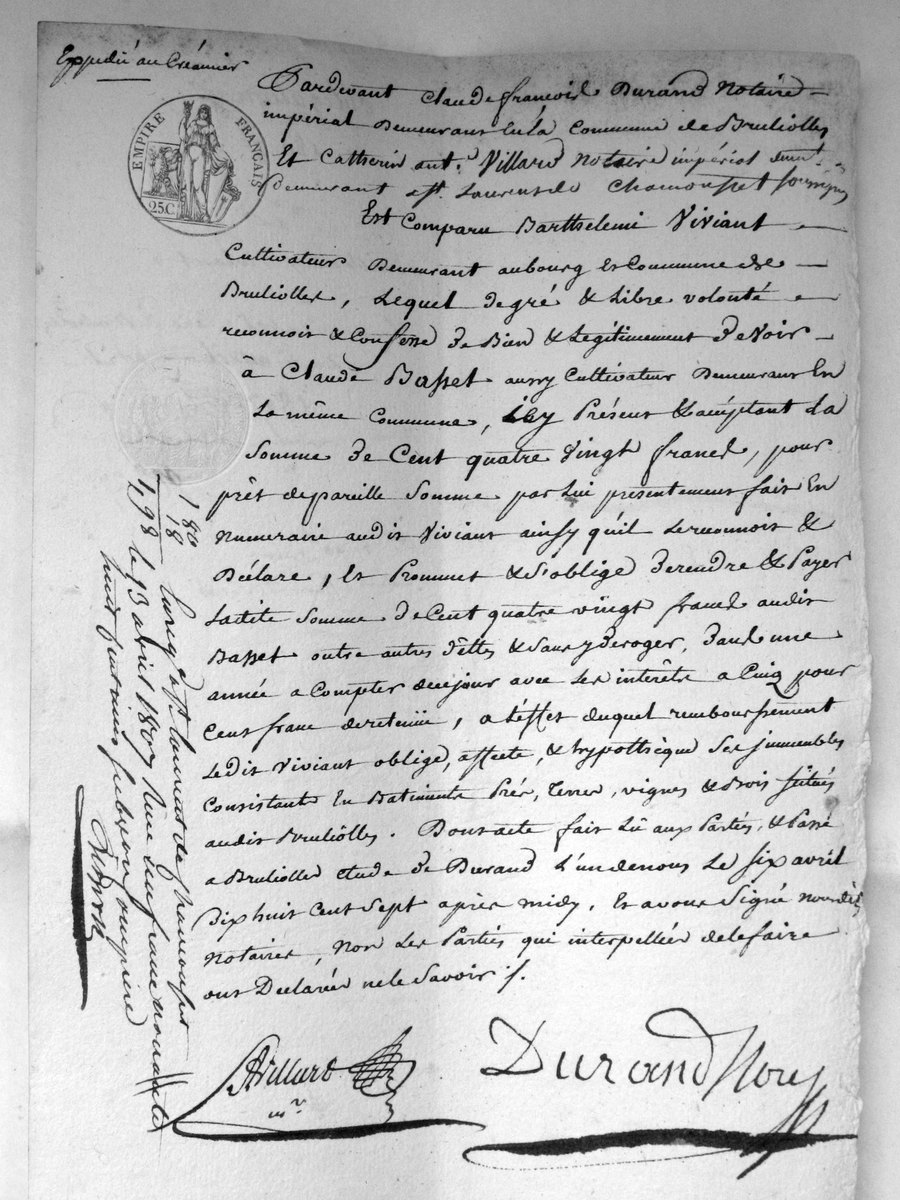 Expedié au Créancier
EMPIRE FRANÇAIS
25C
Pardevant Claude françois Durand Notaire
impérial Demeurant En la Commune de Brulliolles
Et Catherin ant.e Villard Notaire impérial
Demeurant a St. Laurent de Chamousset soussignés
Est Comparu Barthelemi Viviant
Cultivateur Demeurant au bourg Et Commune de
Brulliolles, Lequel de gré & Libre volonté
reconnoit & Confesse de Bien & Legitimement Devoir
à Claude Basset aussy Cultivateur Demeurant En
La même Commune, icy Présent & acceptant La
Somme De Cent quatre Vingt francs, pour
prêt de pareille Somme par Lui présentement fait En
Numeraire audit Viviant ainsy qu'il Le reconnoit &
Déclare, Et Promet & S'oblige De rendre & Payer
Ladite Somme De Cent quatre vingt francs audit
Basset outre autres Dettes & Sans y Deroger, Dans une
année a Compter de ce jour avec Les interêts a Cinq pour
Cent franc de retenue, a L'effet duquel remboursement
Ledit Viviant oblige, affecte, & hypothèque Ses immeubles
Consistants En Batiments Prés, Terres, vignes & Bois Situés
audit Brulliolles. Dont acte fait Lû aux Parties, & Passé
a Brulliolles etude De Durand L'un de nous Le Six avril
Dix huit Cent Sept après midy, Et avons Signé nous dits
Notaires, Non Les Parties qui interpellées de le faire
ont Déclarées ne le Savoir /.
Villard
Durand Nore
1 80
18
1,98
Enreg. a St Laurent de Chamousset
le 13 avril 1807 Reçu un franc nonante
huit centimes subvention comprise